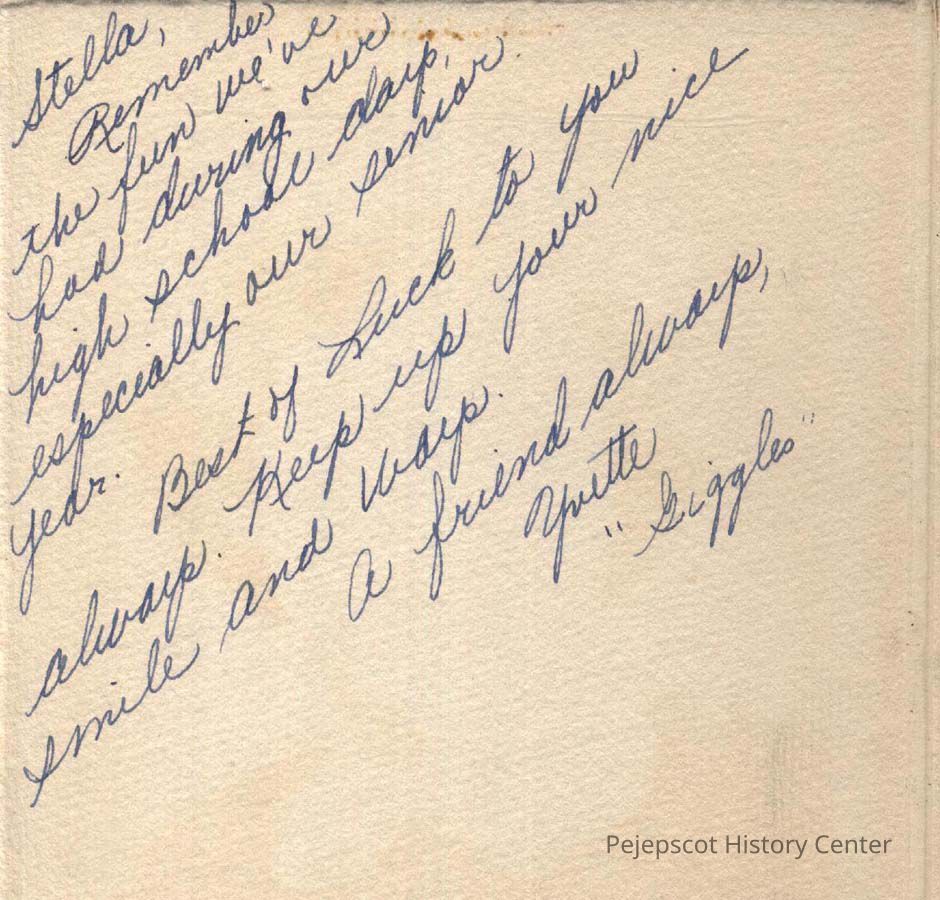 Stella,
Remember
the fun we've
had during our
high school days,
especially our senior
year. Best of Luck to you
always. Keep up your nice
smile and ways.
A friend always,
Yvette
"Giggles"
Pejepscot History Center